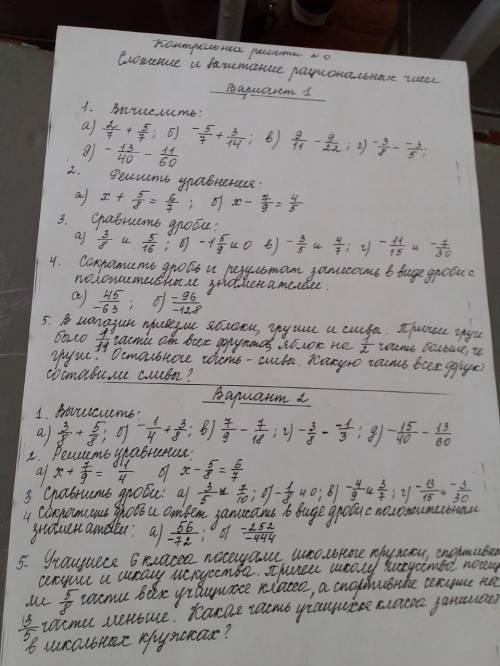 Контрольная работа №
Сложение и вычитание рациональных чисел
Вариант 1
1. Вычислить:
а) 2/7 + 5/7; б) -5/7 + 3/14; в) 9/11 - 9/22; г) -3/8 - -3/5;
д) -13/40 - 11/60
2. Решить уравнения:
а) x + 5/8 = 6/7; б) x - 7/9 = 4/5
3. Сравнить дроби:
а) 3/8 и 5/16; б) -1 5/9 и 0 в) -3/5 и 4/7; г) -11/15 и -7/30
4. Сократить дробь и результат записать в виде дроби с
положительным знаменателем.
а) 45/-63; б) -96/-128
5. В магазин привезли яблоки, груши и сливы. Причем груш
было части от всех фруктов, яблок на 1/2 часть больше, че
груш. Остальное часть - сливы. Какую часть всех фрук
составили сливы?
Вариант 2
1. Вычислить:
а) 3/8 + 5/8; б) -1/4 + 3/8; в) 7/9 - 7/18; г) -3/8 - -1/3; д) -15/40 - 13/60
2. Решить уравнения:
а) x + 7/9 = 1/4 б) x - 5/8 = 6/7
3 Сравнить дроби: а) и 7/10; б) -1/8 и 0; в) -4/9 и 3/7; г) -13/15 и -3/30
4 Сократить дробь и ответ записать в виде дроби с положительным
знаменателем: а) 56/-72; б) -252/-444
5. Учащиеся 6 класса посещали школьные кружки, спортивн
секции и школу искусства. Причем школу искусства посещ
ли 5/8 части всех учащихся класса, а спортивные секции на
части меньше. Какая часть учащихся класса занимает
в школьных кружках?